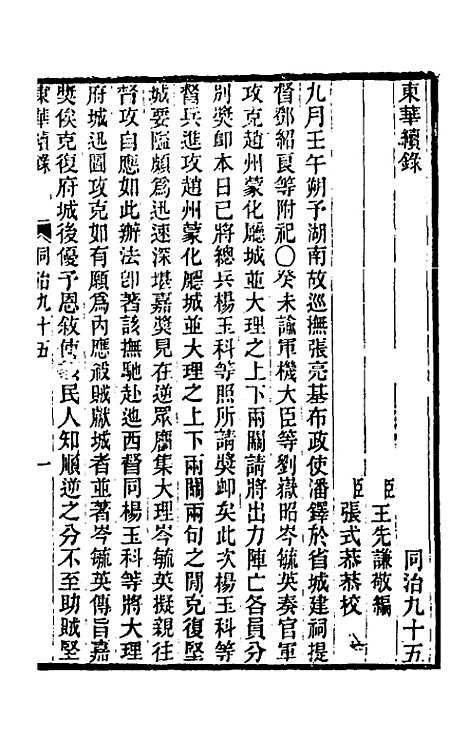 東華續錄
同治九十五
臣王先謙敬編
臣張式恭恭校
九月壬午朔予湖南故巡撫張亮基布政使潘鐸於省城建祠提
督鄧紹良等附祀〇癸未諭軍機大臣等劉嶽昭岑毓英奏官軍
攻克趙州蒙化廳城並大理之上下兩關請將出力陣亡各員分
別獎卹本日已將總兵楊玉科等照所請獎卹矣此次楊玉科等
督兵進攻趙州蒙化廳城並大理之上下兩關兩旬之閒克復堅
城要隘頗爲迅速深堪嘉獎見在逆眾麕集大理岑毓英擬親往
督攻自應如此辦法卽著該撫馳赴迤西督同楊玉科等將大理
府城迅圖攻克如有願爲內應殺賊獻城者並著岑毓英傳旨嘉
獎俟克復府城後優予恩敘使民人知順逆之分不至助賊堅
東華續錄
同治九十五
一